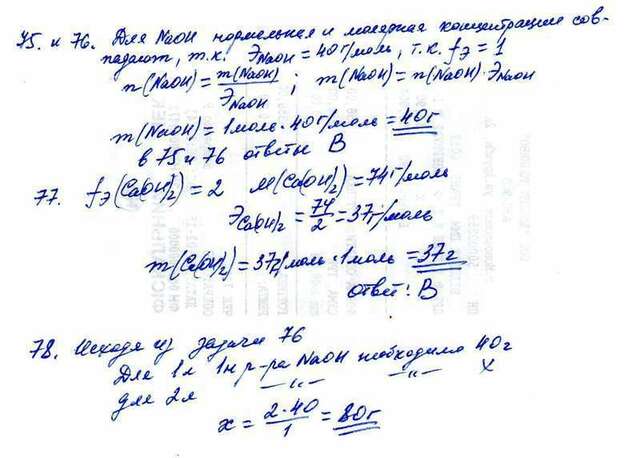 75. и 76. Для NaOH нормальная и молярная концентрации сов-
падают, т.к. Э NaOH = 40 г/моль, т.к. fэ = 1
n(NaOH) = m(NaOH)/Э NaOH ; m(NaOH) = n(NaOH)·Э NaOH
m(NaOH) = 1моль·40 г/моль = 40г
в 75 и 76 ответы В
77. fэ(Ca(OH)2) = 2 М(Ca(OH)2) = 74 г/моль
Э Ca(OH)2 = 74/2 = 37 г/моль
m(Ca(OH)2) = 37 г/моль·1 моль = 37 г
ответ: В
78. Исходя из задачи 76
Для 1л 1н р-ра NaOH необходимо 40г
для 2л —"— —"— x
x = 2·40/1 = 80г